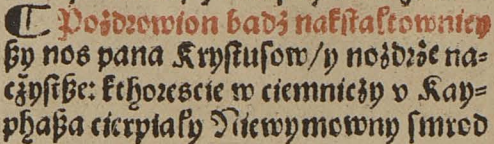 ¶ Pozdrowion bądź nakſtałtowniey
ßy nos pana Kryſtuſow/ y nozdrże na⸗
czyſtße: kthoreście w ciemniczy v Kay⸗
phaßa cierpiały Niewymowny ſmrod